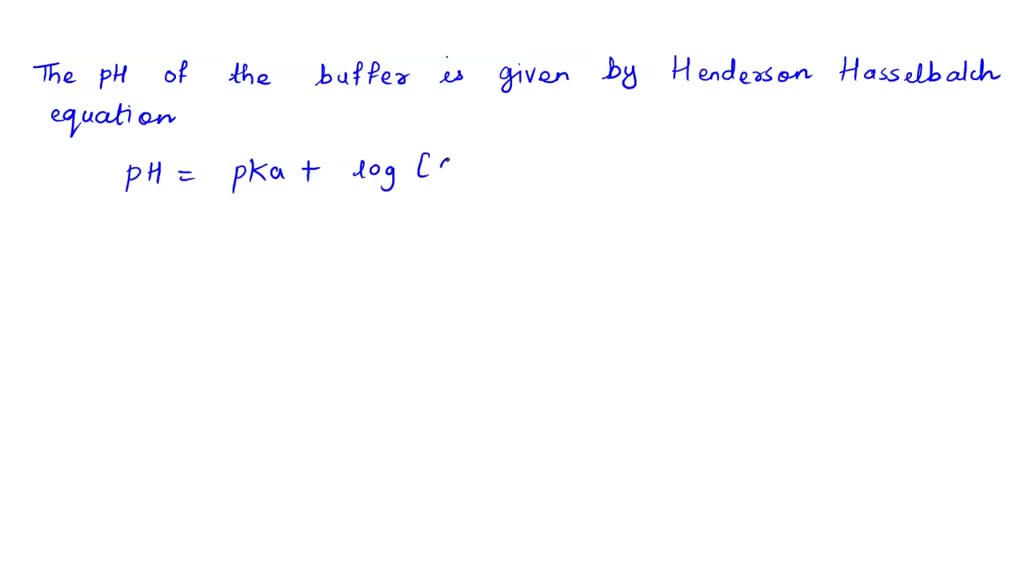 The pH of the buffer is given by Henderson Hasselbalch
equation
pH = pka + log [